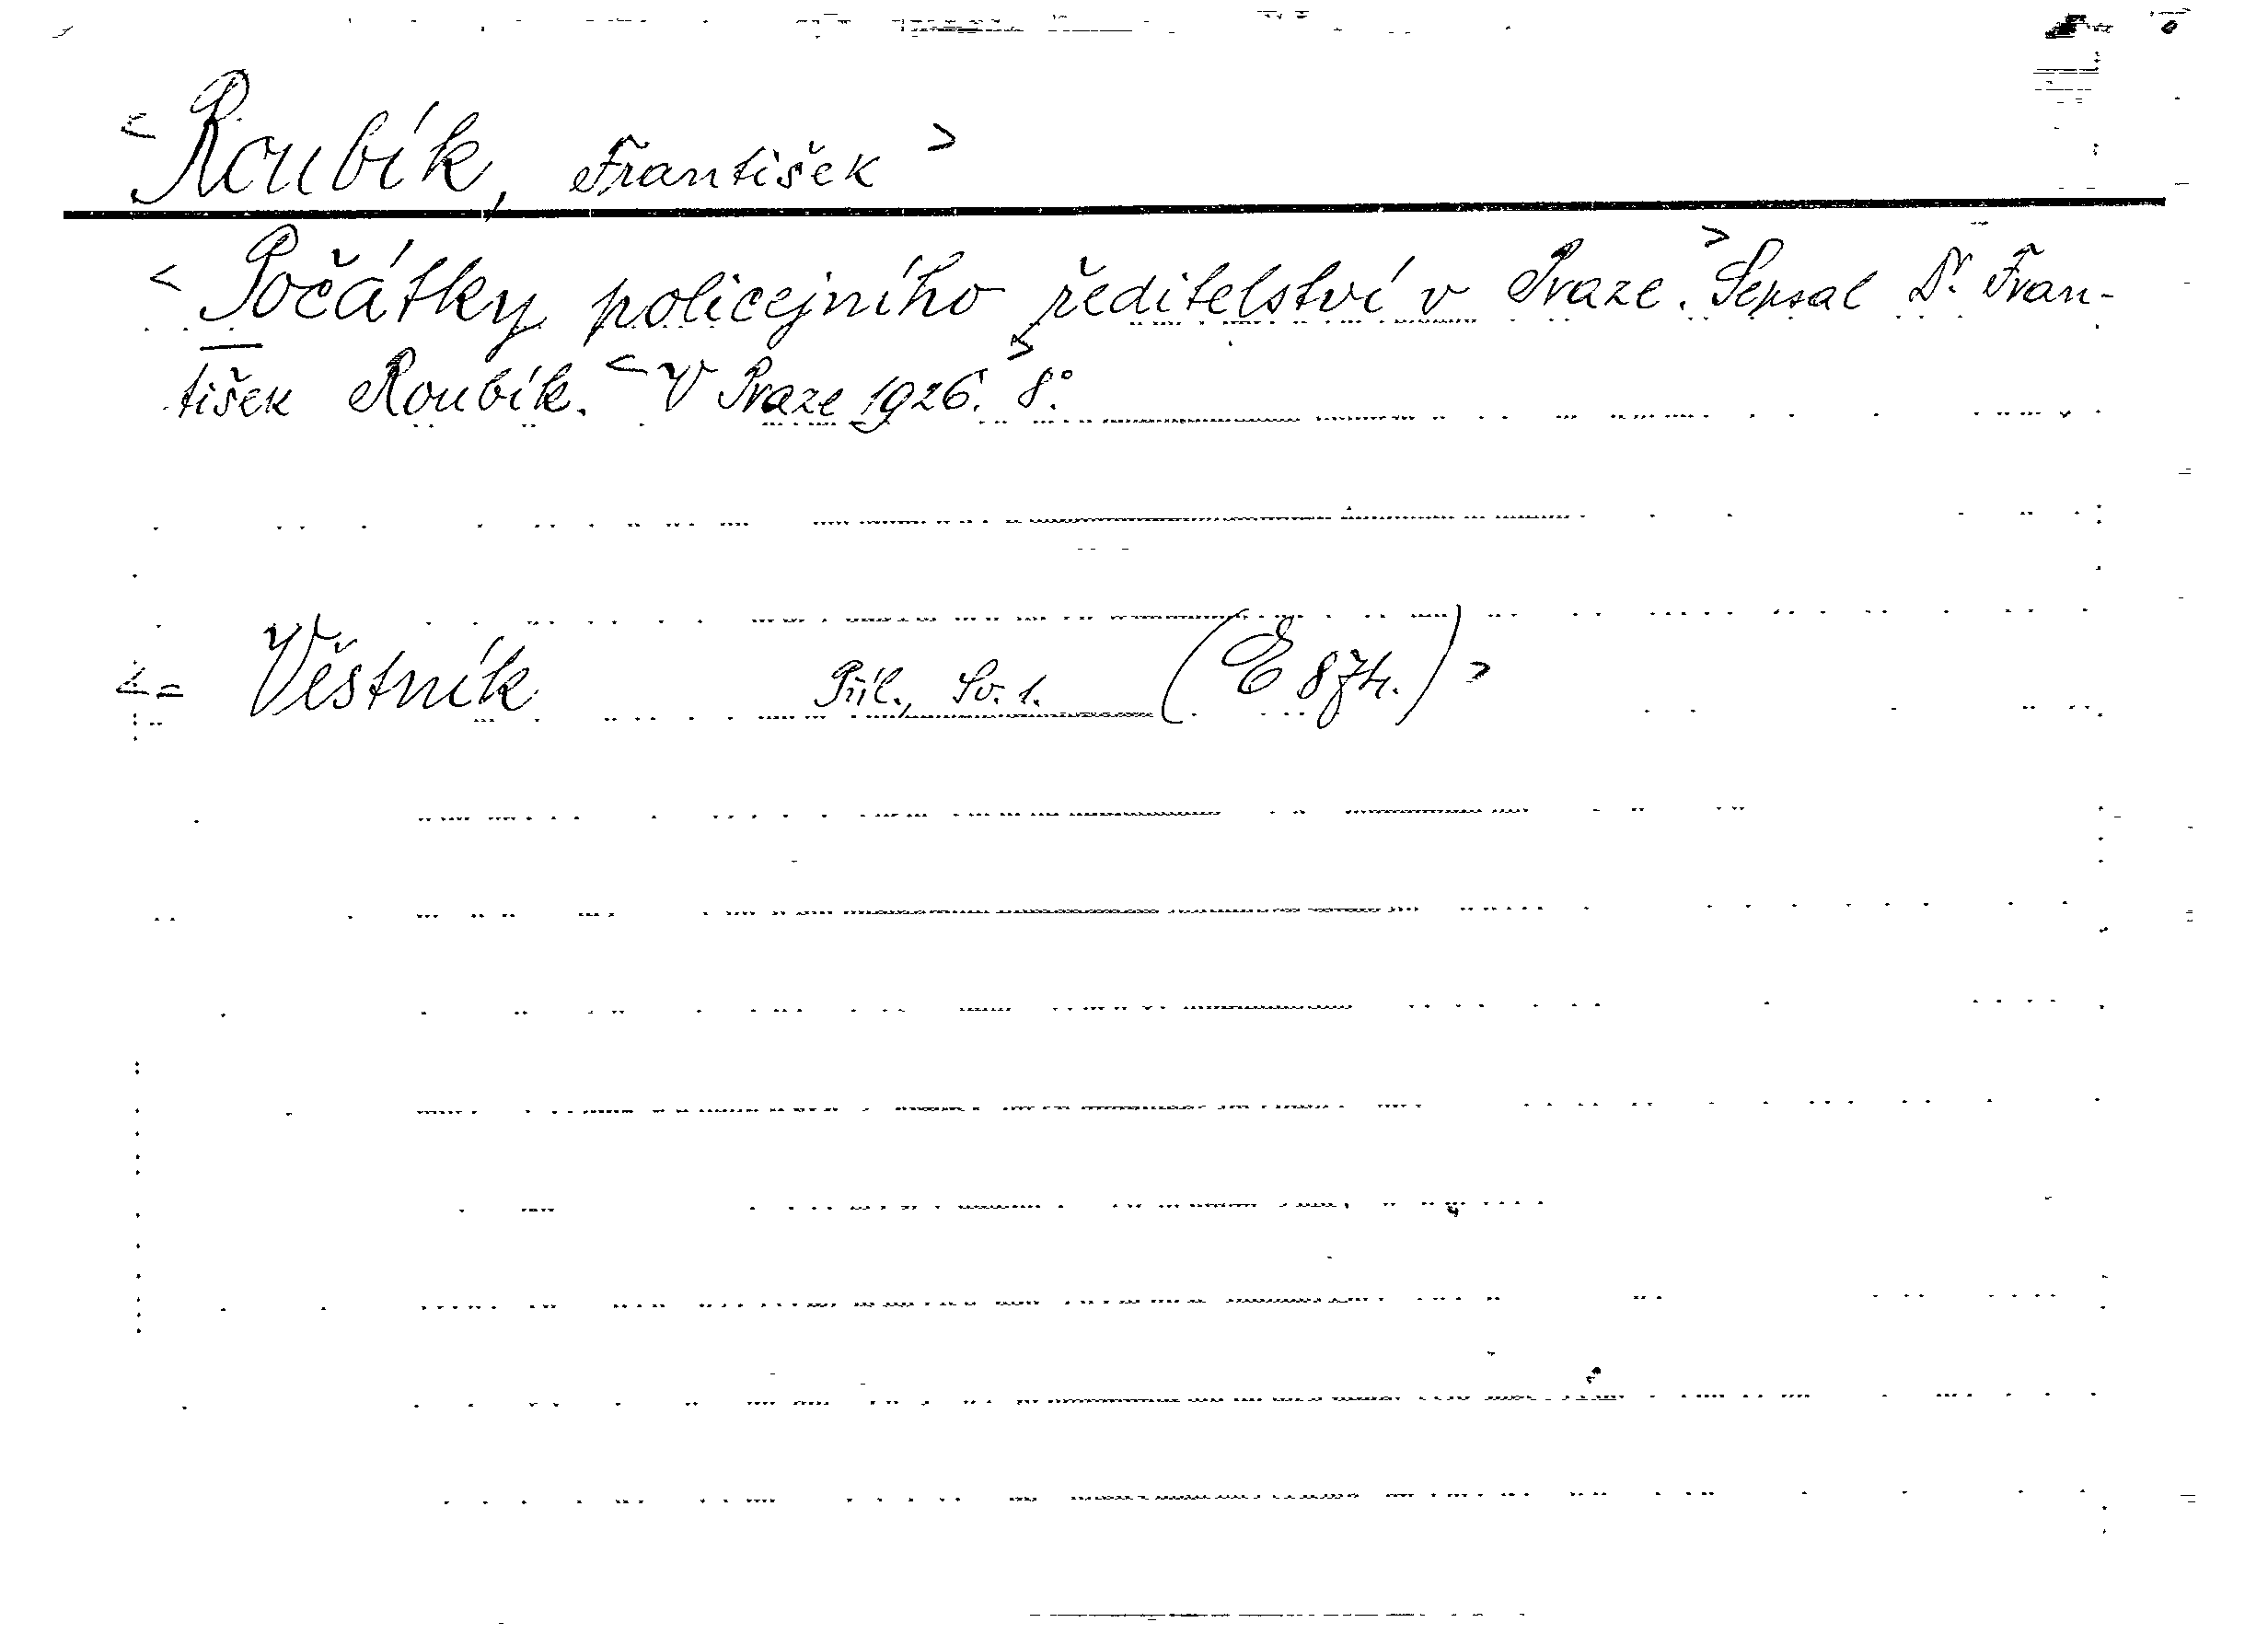 < Roubík, František >
< Počátky policejního ředitelství v Praze. > Sepsal Dr. Fran-
tišek Roubík. < V Praze 1926. > 8°.
< = Věstník Příl., Sv. 1. (E 874.) >